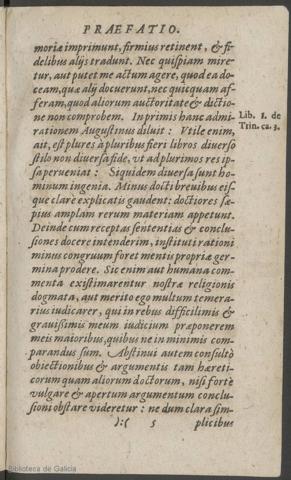 PRAEFATIO.
moriæ imprimunt, firmius retinent, & fi-
delibus alijs tradunt. Nec quispiam mire-
tur, aut putet me actum agere, quod ea do-
ceam, quæ alij docuerunt, nec quicquam af-
feram, quod aliorum auctoritate & dictio-
ne non comprobem. Inprimis hanc admi-
rationem Augustinus diluit: Vtile enim,
ait, est plures à pluribus fieri libros diuerso
stilo non diuersa fide, vt ad plurimos res ip-
sa perueniat: Siquidem diuersa sunt ho-
minum ingenia. Minus docti breuibus eis-
que clarè explicatis gaudent: doctiores sæ-
pius amplam rerum materiam appetunt.
Deinde cum receptas sententias & conclu-
siones docere intenderim, instituti rationi
minus congruum foret mentis propriæ ger-
mina prodere. Sic enim aut humana com-
menta existimarentur nostræ religionis
dogmata, aut merito ego multum temera-
rius iudicarer, qui in rebus difficilimis &
grauissimis meum iudicium præponerem
meis maioribus, quibus ne in minimis com-
parandus sum. Abstinui autem consultò
obiectionibus & argumentis tam hæreti-
corum quam aliorum doctorum, nisi fortè
vulgare & apertum argumentum conclu-
sioni obstare videretur: ne dum clara sim-
):( 5 plicibus
Lib. 1. de
Trin. ca. 3.
Biblioteca de Galicia